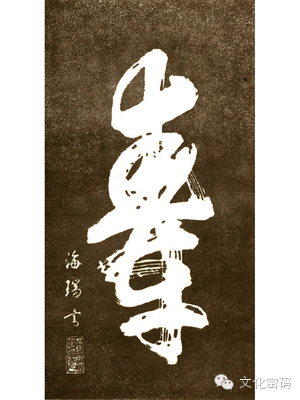 壽
海瑞書
文化密码